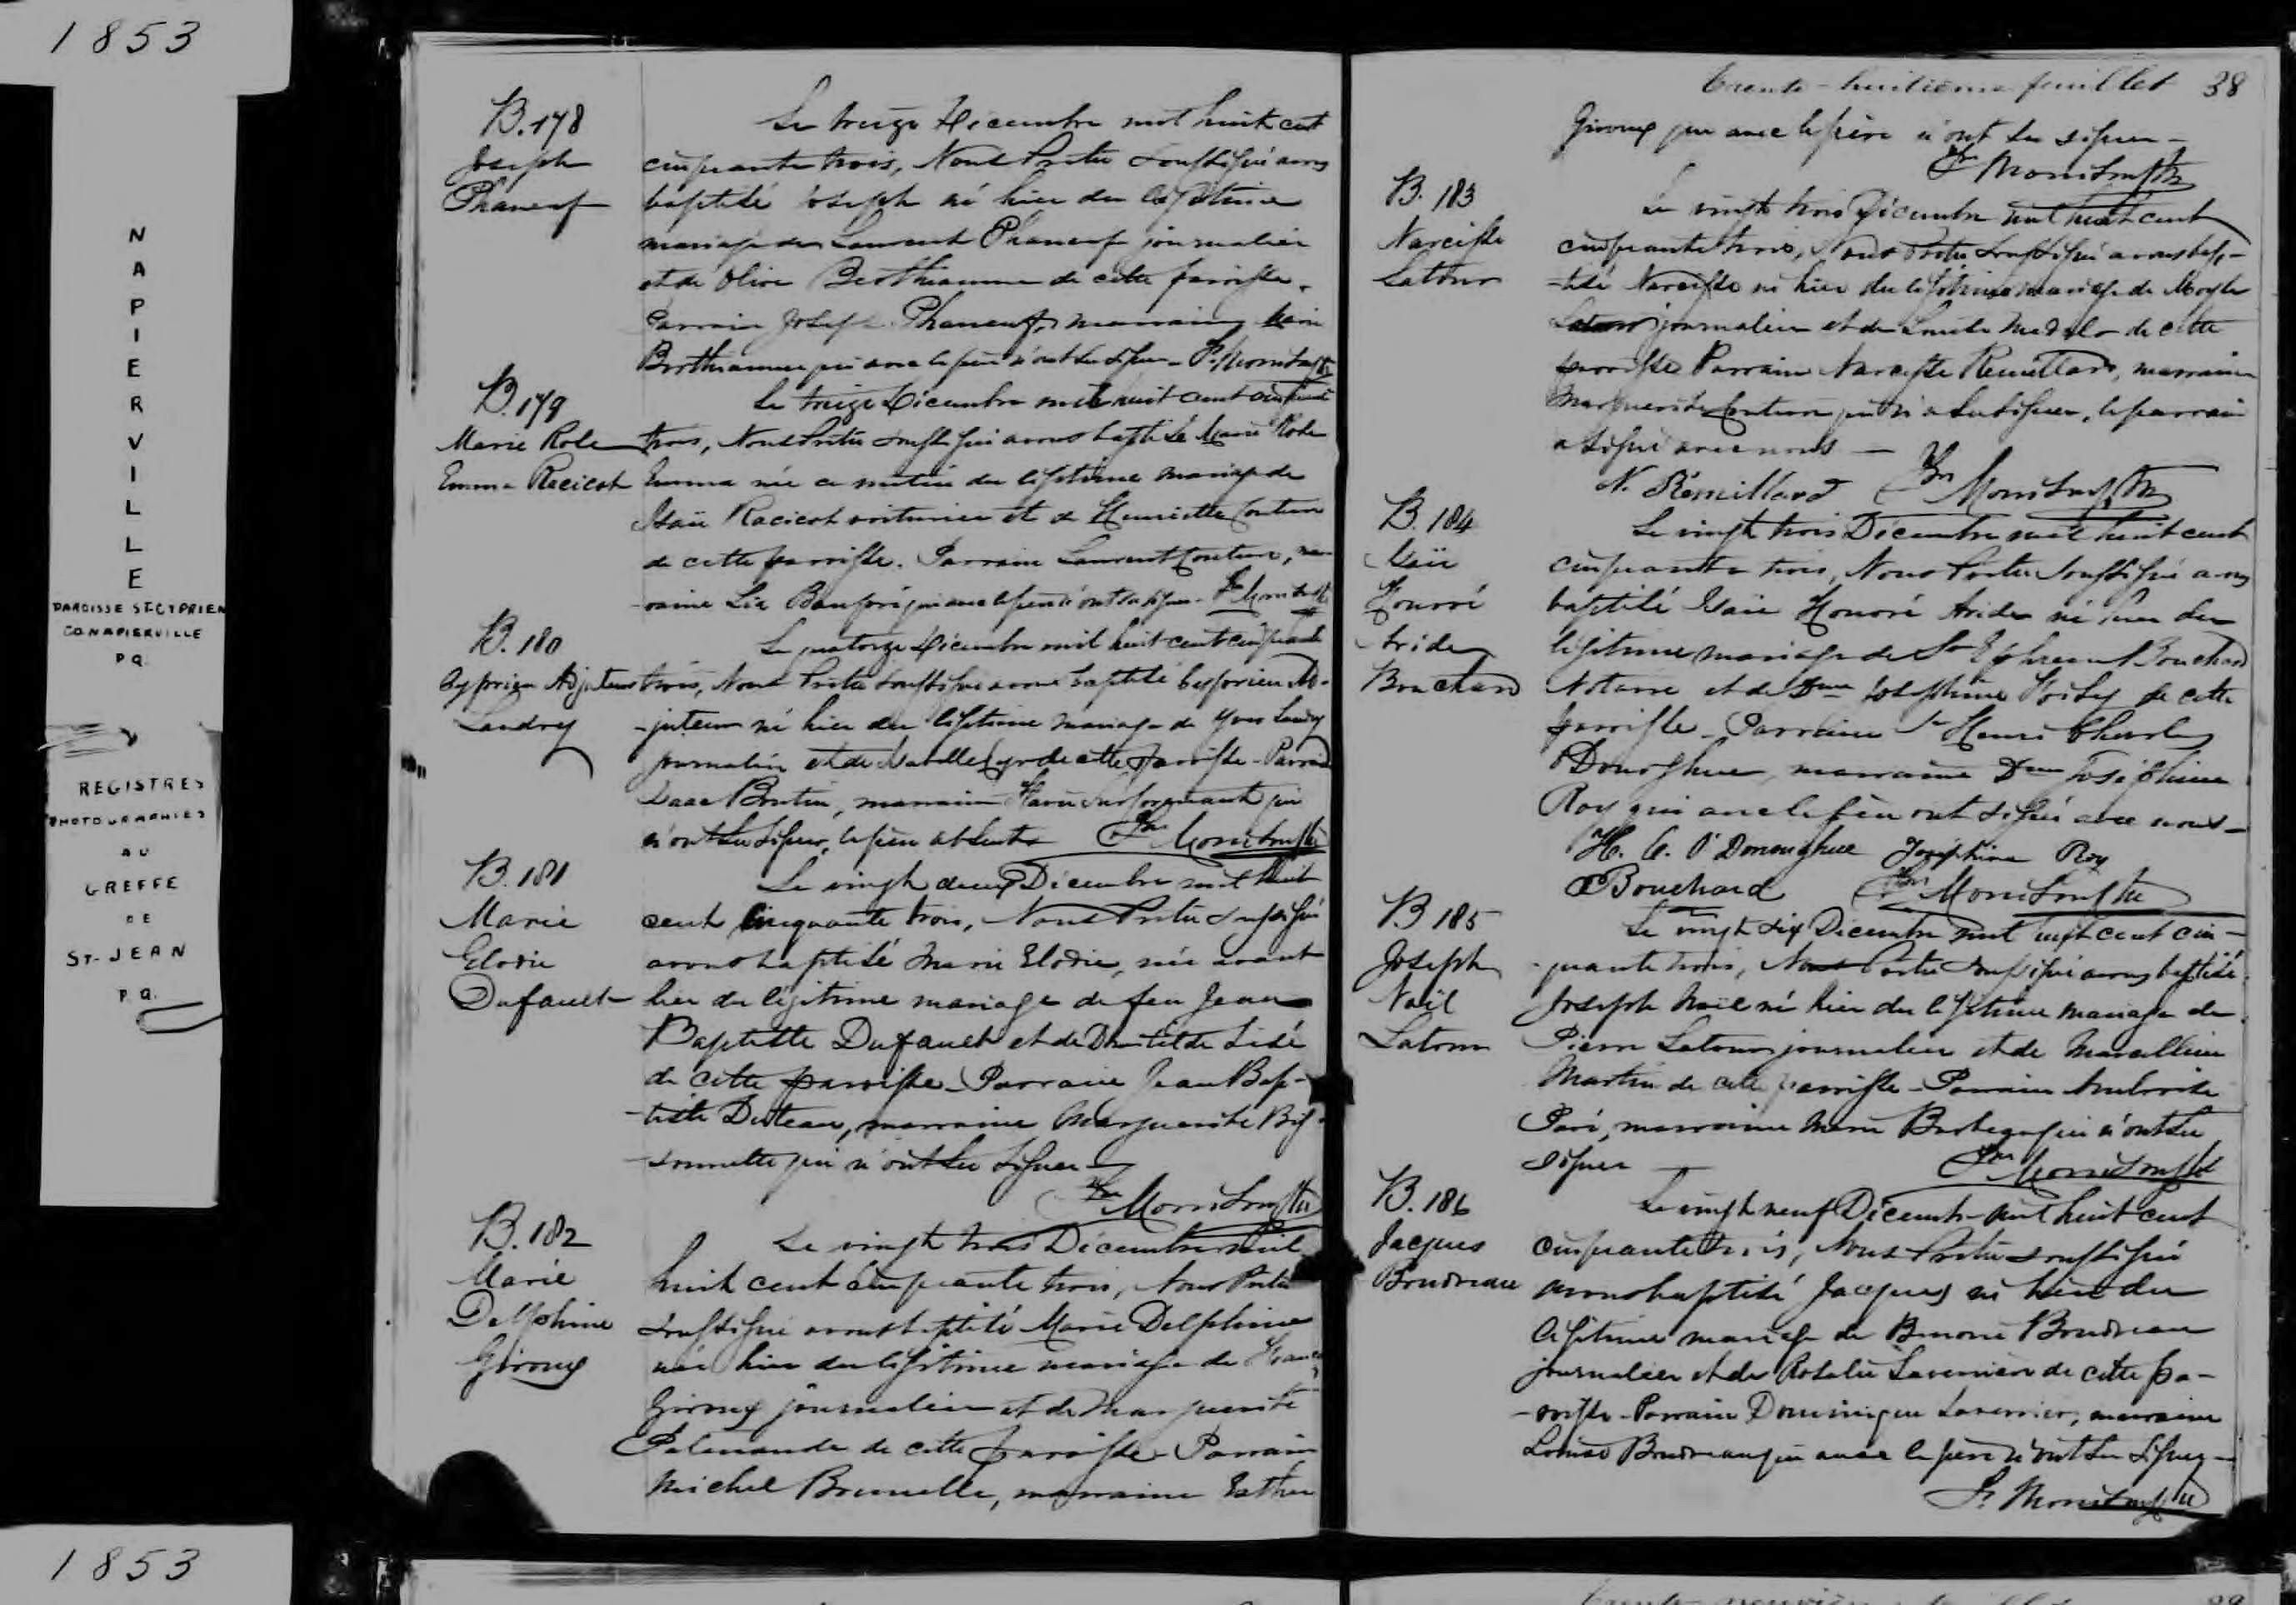 1853
NAPIERVILLE
PAROISSE ST-CYPRIEN
CO. NAPIERVILLE
P.Q.
REGISTRES
PHOTOGRAPHIES
AU
GREFFE
DE
ST-JEAN
P.Q.
1853
B.178
Joseph
Phaneuf
Le treize Décembre mil huit cent
cinquante trois, Nous Prêtre soussigné avons
baptisé Joseph né hier du légitime
mariage de Laurent Phaneuf journalier
et de Olive Berthiaume de cette paroisse.
Parrain Joseph Phaneuf, marraine Marie
Berthiaume qui avec le père n'ont su signer -
B.179
Marie Rose
Emma Racicot
Le treize Décembre mil huit cent cinquante
trois, Nous Prêtre soussigné avons baptisé Marie Rose
Emma née ce matin du légitime mariage de
Isaïe Racicot voiturier et de Henriette Couture
de cette paroisse. Parrain Laurent Couture, mar-
-raine Beaupré qui avec le père n'ont su signer -
B.180
Cyprien Adjuteur
Landry
Le quatorze Décembre mil huit cent cinquante
trois, Nous Prêtre soussigné avons baptisé Cyprien Ad-
-juteur né hier du légitime mariage de Yves Landry
journalier et de Isabelle Cyr de cette paroisse - Parrain
Isaac Boutin, marraine Marie qui
n'ont su signer, le père absent -
B.181
Marie
Elodie
Dufault
Le vingt deux Décembre mil huit
cent cinquante trois, Nous Prêtre soussigné
avons baptisé Marie Elodie, née avant
hier du légitime mariage de feu Jean
Baptiste Dufault et de
de cette paroisse - Parrain Jean Bap-
-tiste Duteau, marraine Marguerite Bis-
-sonnette qui n'ont su signer -
B.182
Marie
Delphine
Giroux
Le vingt trois Décembre mil
huit cent cinquante trois, Nous Prêtre
soussigné avons baptisé Marie Delphine
née hier du légitime mariage de
Giroux journalier et de Marguerite
de cette paroisse - Parrain
Michel Brunelle, marraine Esther
Trente-huitième feuillet 38
Giroux qui avec le père n'ont su signer -
B.183
Narcisse
Latour
Le vingt trois Décembre mil huit cent
cinquante trois, Nous Prêtre soussigné avons bap-
-tisé Narcisse né hier du légitime mariage de Moyse
Latour journalier et de de cette
paroisse Parrain Narcisse Remillard, marraine
Marguerite Couture qui n'a su signer, le parrain
a signé avec nous -
N. Rémillard
B.184
Isaïe
Honoré
Aride
Bouchard
Le vingt trois Décembre mil huit cent
cinquante trois, Nous Prêtre soussigné avons
baptisé Isaïe Honoré Aride né hier du
légitime mariage de Sr Ephrem Bouchard
Notaire et de Dme Joséphine de cette
paroisse - Parrain Sr Henri Charles
O'Donoghue, marraine Dme Joséphine
Roy qui avec le père ont signé avec nous -
H. C. O'Donoughue Joséphine Roy
Bouchard
B.185
Joseph
Noël
Latour
Le vingt six Décembre mil huit cent cin-
-quante trois, Nous Prêtre soussigné avons baptisé
Joseph Noël né hier du légitime mariage de
Pierre Latour journalier et de Marcelline
Martin de cette paroisse - Parrain Ambroise
Paré, marraine Marie qui n'ont su
signer -
B.186
Jacques
Boudreau
Le vingt neuf Décembre mil huit cent
cinquante trois, Nous Prêtre soussigné
avons baptisé Jacques né hier du
légitime mariage de Benoni Boudreau
journalier et de Rosalie Lavernier de cette pa-
-roisse - Parrain Dominique Lavernier, marraine
Louise Boudreau qui avec le père n'ont su signer -